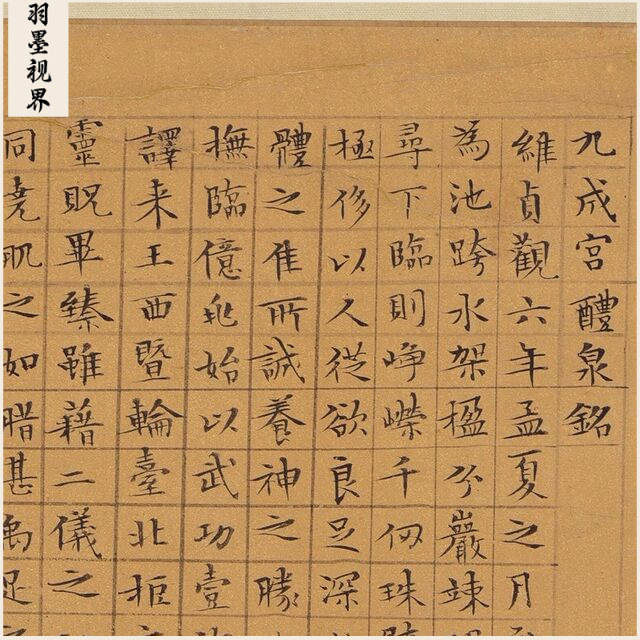 羽墨视界
九成宮醴泉銘
維貞觀六年孟夏之月
為池跨水架楹分巖竦
尋下臨則崢嶸千仞珠
極侈以人從欲良足深
體之佳所誠養神之勝
撫臨億兆始以武功壹
譯来王西暨輪臺北拒
靈貺畢臻雖藉二儀之
同堯肌之如腊甚禹足